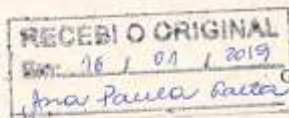 RECEBI O ORIGINAL
Em: 16 / 01 / 2019
Ana Paula